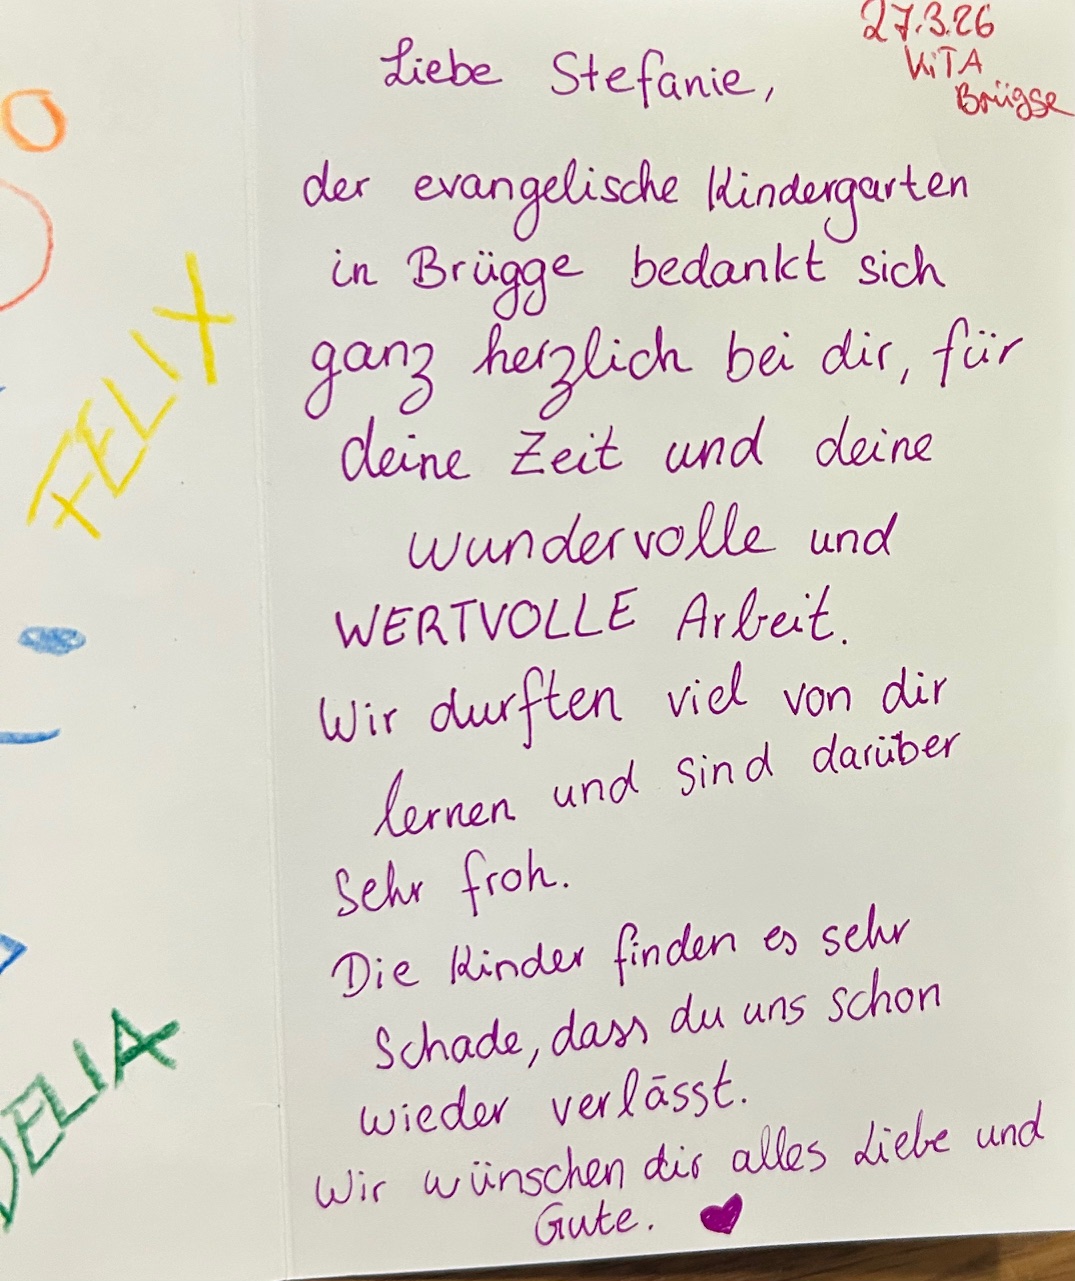 27.3.26
KiTA
Brügge
Liebe Stefanie,
der evangelische Kindergarten
in Brügge bedankt sich
ganz herzlich bei dir, für
deine Zeit und deine
wundervolle und
WERTVOLLE Arbeit.
Wir durften viel von dir
lernen und sind darüber
sehr froh.
Die Kinder finden es sehr
Schade, dass du uns schon
wieder verlässt.
Wir wünschen dir alles Liebe und
Gute.
FELIX